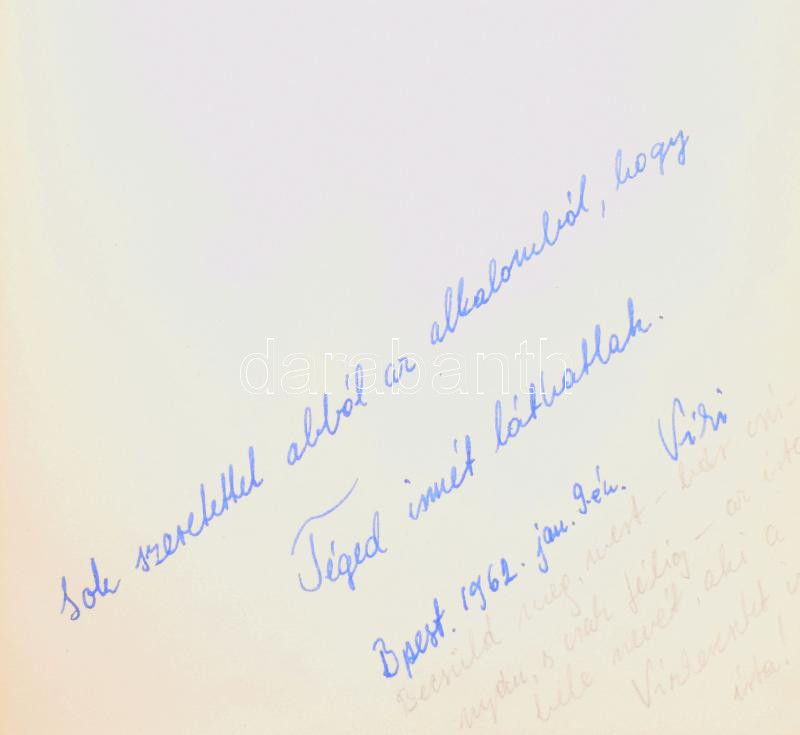 Sok szeretettel abból az alkalomból, hogy
Téged ismét láthatlak.
Bpest. 1962. jan. 9.-én. Vizi
darabanth
Becsüld meg, mert – bár csú-
nyán, s csak félig – az írta
bele nevét, aki a
írta!